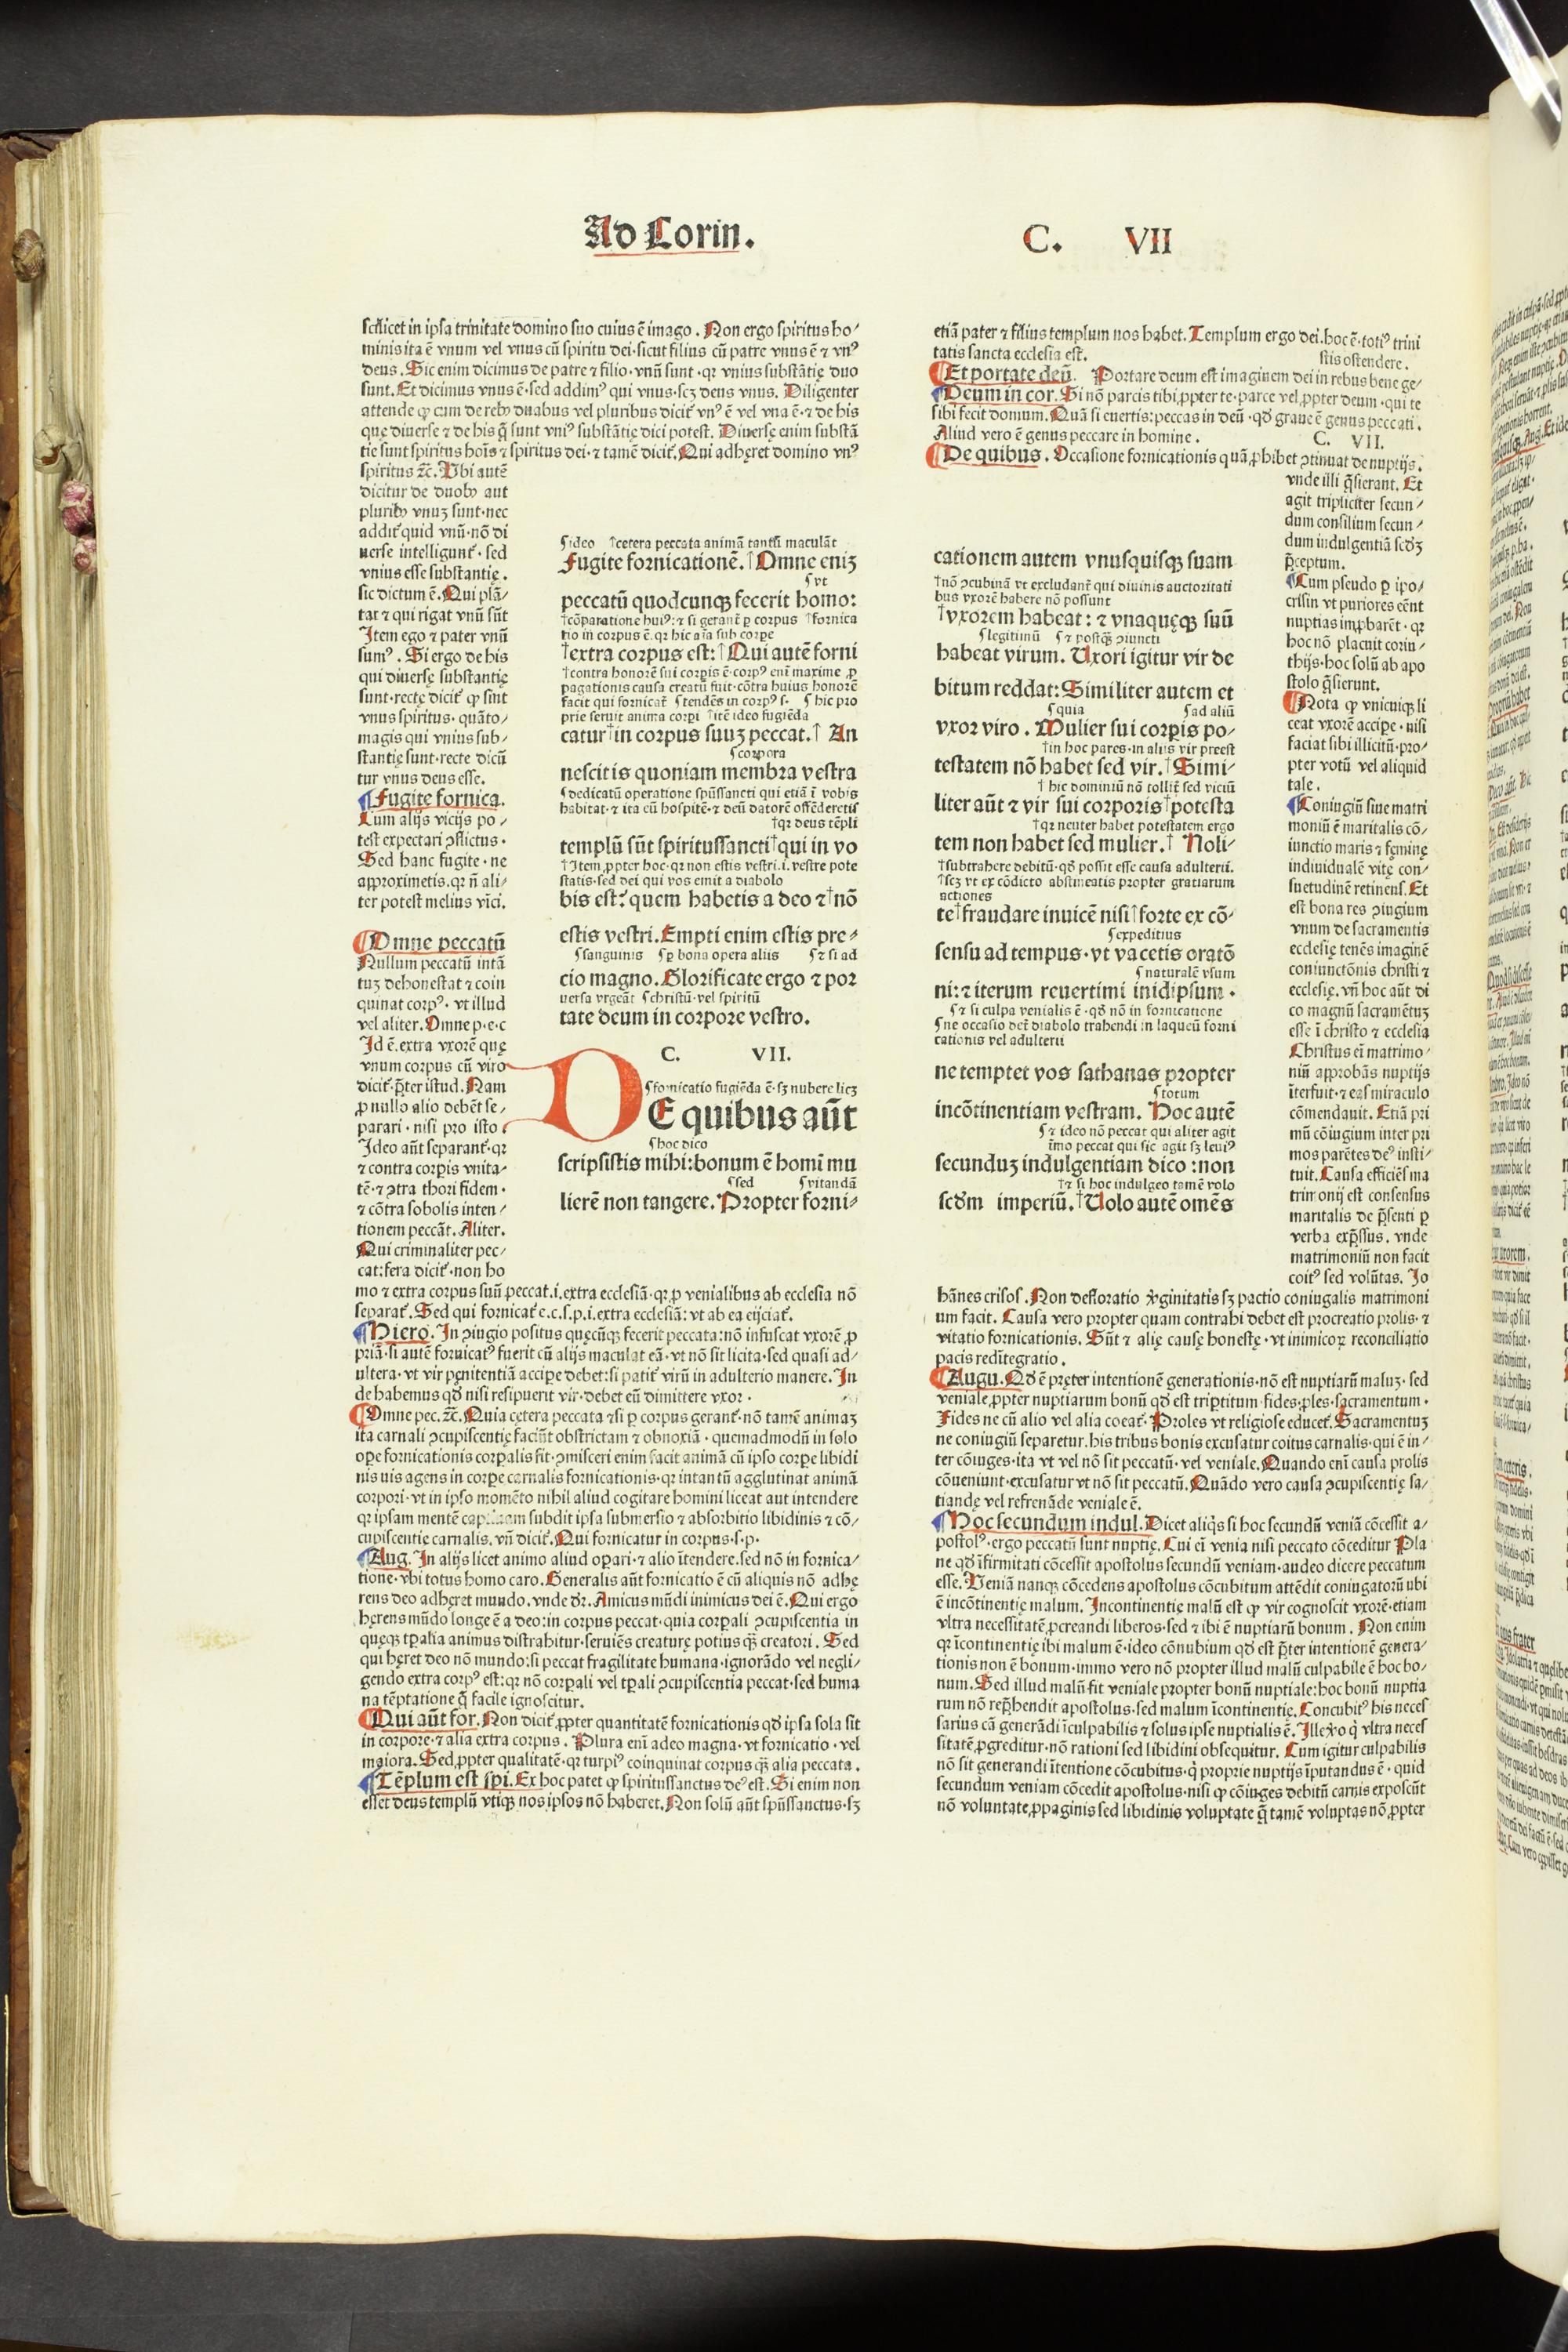 Ad Corin.
C. VII
scilicet in ipsa trinitate domino suo cuius ē imago. Non ergo spiritus ho/
minis ita ē vnum vel vnus cū spiritu dei·sicut filius cū patre vnus ē ⁊ vnꝰ
deus. Sic enim dicimus de patre ⁊ filio·vnū sunt·qꝛ vnius substātię duo
sunt. Et dicimus vnus ē·sed addimꝰ qui vnus·scꝫ deus vnus. Diligenter
attende ꝙ cum de rebꝰ duabus vel pluribus dicit̉ vnꝰ ē vel vna ē·⁊ de his
quę diuerse ⁊ de his q̄ sunt vniꝰ substātię dici potest. Diuersę enim substā
tie sunt spiritus hoīs ⁊ spiritus dei·⁊ tamē dicit̉. Qui adhęret domino vnꝰ
spiritus ⁊c̄. Vbi autē
dicitur de duobꝰ aut
pluribꝰ vnuꝫ sunt·nec
addit̉ quid vnū·nō di
uerse intelligunt̉·sed
vnius esse substantię.
sic dictum ē. Qui plā/
tat ⁊ qui rigat vnū sūt
Item ego ⁊ pater vnū
sumꝰ. Si ergo de his
qui diuersę substantię
sunt·recte dicit̉ ꝙ sint
vnus spiritus·quāto/
magis qui vnius sub/
stantię sunt·recte dicū
tur vnus deus esse.
¶Fugite fornica.
Cum alijs vicijs po/
test expectari ɔflictus·
Sed hanc fugite·ne
approximetis.qꝛ n̄ ali/
ter potest melius vīci.
¶Omne peccatū
Nullum peccatū intā
tuꝫ dehonestat ⁊ coin
quinat corpꝰ·vt illud
vel aliter. Omne p·e·c
Id ē.extra vxorē quę
vnum corpus cū viro
dicit̉·p̄ter istud. Nam
ꝓ nullo alio debēt se/
parari·nisi pro isto
Ideo aūt separant̉·qꝛ
⁊ contra corpis vnita/
tē·⁊ ɔtra thori fidem·
⁊ cōtra sobolis inten/
tionem peccāt. Aliter.
Qui criminaliter pec/
cat:fera dicit̉·non ho
mo ⁊ extra corpus suū peccat.i.extra ecclesiā·qꝛ ꝓ venialibus ab ecclesia nō
separat̉. Sed qui fornicat̉ e.c.s.p.i.extra ecclesiā: vt ab ea eijciat̉.
¶Hiero. In ɔiugio positus quęcūqꝫ fecerit peccata:nō infuscat vxorē ꝓ
priā·si autē fornicatꝰ fuerit cū alijs maculat eā·vt nō sit licita·sed quasi ad/
ultera·vt vir pęnitentiā accipe debet:si patit̉ virū in adulterio manere. In
de habemus qd̄ nisi resipuerit vir·debet eū dimittere vxor·
¶Omne pec.⁊c̄. Quia cętera peccata ⁊si ꝑ corpus gerant̉·nō tamē animaꝫ
ita carnali ɔcupiscentię faciūt obstrictam ⁊ obnoxiā·quemadmodū in solo
ope fornicationis corpalis fit·ɔmisceri enim facit animā cū ipso corpe libidi
nis uis agens in corpe carnalis fornicationis·qꝛ intantū agglutinat animā
corpori·vt in ipso momēto nihil aliud cogitare homini liceat aut intendere
qꝛ ipsam mentē captiuam subdit ipsa submersio ⁊ absorbitio libidinis ⁊ cō/
cupiscentie carnalis. vn̄ dicit̉. Qui fornicatur in corpus·s·p·
¶Aug. In alijs licet animo aliud opari·⁊ alio ītendere.sed nō in fornica/
tione·vbi totus homo caro. Generalis aūt fornicatio ē cū aliquis nō adhę
rens deo adhęret mundo.vnde dꝛ. Amicus mūdi inimicus dei ē. Qui ergo
hęrens mūdo longe ē a deo:in corpus peccat·quia corpali ɔcupiscentia in
quęqꝫ tpalia animus distrahitur·seruiēs creaturę potius qꝫ̄ creatori. Sed
qui hęret deo nō mundo:si peccat fragilitate humana·ignorādo vel negli/
gendo extra corpꝰ est:qꝛ nō corpali vel tpali ɔcupiscentia peccat·sed huma
na tēptatione q̄ facile ignoscitur.
¶Qui aūt for. Non dicit̉ ꝓpter quantitatē fornicationis qd̄ ipsa sola sit
in corpore·⁊ alia extra corpus. Plura enī adeo magna·vt fornicatio·vel
maiora. Sed ꝓpter qualitatē·qꝛ turpiꝰ coinquinat corpus qꝫ̄ alia peccata.
¶Tēplum est spi. Ex hoc patet ꝙ spiritussanctus deꝰ est. Si enim non
esset deus templū vtiqꝫ nos ipsos nō haberet. Non solū aūt spūssanctus·sꝫ
ʃideo †cetera peccata animā tantū maculāt
Fugite fornicationē.†Omne eniꝫ
ʃvt
peccatū quodcunqꝫ fecerit homo:
†cōparatione huiꝰ:⁊ si gerant̉ ꝑ corpus †fornica
tio in corpus ē.qꝛ hic aīa sub corpe
†extra corpus est:†Qui autē forni
†contra honorē sui corpis ē·corpꝰ enī maxime ꝓ
pagationis causa creatū fuit·cōtra huius honorē
facit qui fornicat̉ ʃtendēs in corpꝰ s· ʃhic pro
prie seruit anima corpi †itē ideo fugiēda
catur†in corpus suuꝫ peccat.† An
ʃcorpora
nescitis quoniam membra vestra
ʃdedicatū operatione spūssancti qui etiā ī vobis
habitat·⁊ ita cū hospitē·⁊ deū datorē offēderetis
†qꝛ deus tēpli
templū sūt spiritussancti†qui in vo
†Item ꝓpter hoc·qꝛ non estis vestri.i.vestre pote
statis·sed dei qui vos emit a diabolo
bis est:quem habetis a deo ⁊†nō
estis vestri. Empti enim estis pre/
ʃsanguinis ʃꝑ bona opera aliis ʃ⁊ si ad
cio magno. Glorificate ergo ⁊ por
uersa vrgeāt ʃchristū·vel spiritū
tate deum in corpore vestro.
C. VII.
ʃfornicatio fugiēda ē·sꝫ nubere licꝫ
DE quibus aūt
ʃhoc dico
scripsistis mihi:bonum ē homī mu
ʃsed ʃvitandā
lierē non tangere. Propter forni/
etiā pater ⁊ filius templum nos habet. Templum ergo dei.hoc ē·totiꝰ trini
tatis sancta ecclesia est.
stis ostendere.
¶Et portate deū. Portare deum est imaginem dei in rebus bene ge/
¶Deum in cor. Si nō parcis tibi ꝓpter te·parce vel ꝓpter deum·qui te
sibi fecit domum. Quā si euertis:peccas in deū·qd̄ graue ē genus peccati.
Aliud vero ē genus peccare in homine.
C. VII.
¶De quibus. Occasione fornicationis quā ꝓhibet ɔtinuat de nuptijs.
vnde illi q̄sierant. Et
agit tripliciter secun/
dum consilium secun/
dum indulgentiā scdꝫ
p̄ceptum.
¶Cum pseudo ꝑ ipo/
crisin vt puriores eēnt
nuptias improbarēt·qꝛ
hoc nō placuit corin/
thijs·hoc solū ab apo
stolo q̄sierunt.
¶Nota ꝙ vnicuiqꝫ li
ceat vxorē accipe·nisi
faciat sibi illicitū·pro/
pter votū vel aliquid
tale.
¶Coniugiū siue matri
moniū ē maritalis cō/
iunctio maris ⁊ feminę
indiuidualē vitę con/
suetudinē retinens. Et
est bona res ɔiugium
vnum de sacramentis
ecclesię tenēs imaginē
coniunctōnis christi ⁊
ecclesię. vn̄ hoc aūt di
co magnū sacramētuꝫ
esse ī christo ⁊ ecclesia
Christus eī matrimo/
niū approbās nuptijs
īterfuit·⁊ eas miraculo
cōmendauit. Etiā pri
mū cōiugium inter pri
mos parētes deꝰ insti/
tuit. Causa efficiēs ma
trimonij est consensus
maritalis de p̄senti ꝑ
verba exp̄ssus. vnde
matrimoniū non facit
coitꝰ sed volūtas. Jo
cationem autem vnusquisqꝫ suam
†nō ɔcubinā vt excludant̉ qui diuinis auctoritati
bus vxorē habere nō possunt
†vxorem habeat: ⁊ vnaquęqꝫ suū
ʃlegitimū ʃ⁊ postqꝫ̄ ɔiuncti
habeat virum. Uxori igitur vir de
bitum reddat:Similiter autem et
ʃquia ʃad aliū
vxor viro. Mulier sui corpis po/
†in hoc pares·in aliis vir preest
testatem nō habet sed vir.†Simi/
†hic dominiū nō tollit̉ sed viciū
liter aūt ⁊ vir sui corporis†potesta
†qꝛ neuter habet potestatem ergo
tem non habet sed mulier.† Noli/
†subtrahere debitū·qd̄ possit esse causa adulterii.
†scꝫ vt ex cōdicto abstineatis propter gratiarum
actiones
te†fraudare inuicē nisi†forte ex cō/
ʃexpeditius
sensu ad tempus·vt vacetis oratō
ʃnaturalē vsum
ni:⁊ iterum reuertimi inidipsum·
ʃ⁊ si culpa venialis ē·qd̄ nō in fornicatione
ʃne occasio det̉ diabolo trahendi in laqueū forni
cationis vel adulterii
ne temptet vos sathanas propter
ʃtotum
incōtinentiam vestram. Hoc autē
ʃ⁊ ideo nō peccat qui aliter agit
īmo peccat qui sic agit sꝫ leuiꝰ
secunduꝫ indulgentiam dico:non
†⁊ si hoc indulgeo tamē volo
scdm imperiū.†Uolo autē omēs
hānes crisos. Non defloratio v̓ginitatis sꝫ pactio coniugalis matrimoni
um facit. Causa vero propter quam contrahi debet est procreatio prolis·⁊
vitatio fornicationis. Sūt ⁊ alię causę honestę·vt inimicoꝝ reconciliatio
pacis redītegratio.
¶Augu. Qd̄ ē pręter intentionē generationis·nō est nuptiarū maluꝫ·sed
veniale ꝓpter nuptiarum bonū qd̄ est tripertitum·fides·ꝓles·sacramentum·
Fides ne cū alio vel alia coeat̉. Proles vt religiose educet̉. Sacramentuꝫ
ne coniugiū separetur.his tribus bonis excusatur coitus carnalis·qui ē in/
ter cōiuges·ita vt vel nō sit peccatū·vel veniale. Quando enī causa prolis
cōueniunt·excusatur vt nō sit peccatū. Quādo vero causa ɔcupiscentię sa/
tiandę vel refrenāde veniale ē.
¶Hoc secundum indul. Dicet aliq̇s si hoc secundū veniā cōcessit a/
postolꝰ·ergo peccatū sunt nuptię. Cui eī venia nisi peccato cōceditur Pla
ne qd̄ īfirmitati cōcessit apostolus secundū veniam·audeo dicere peccatum
esse. Veniā nanqꝫ cōcedens apostolus cōcubitum attēdit coniugatorū ubi
ē incōtinentię malum. Incontinentię malū est ꝙ vir cognoscit vxorē·etiam
vltra necessitatē ꝓcreandi liberos·sed ⁊ ibi ē nuptiarū bonum. Non enim
qꝛ īcontinentię ibi malum ē·ideo cōnubium qd̄ est p̄ter intentionē genera/
tionis non ē bonum·immo vero nō propter illud malū culpabile ē hoc bo/
num. Sed illud malū fit veniale propter bonū nuptiale:hoc bonū nuptia
rum nō rep̄hendit apostolus·sed malum īcontinentię. Concubitꝰ his neces
sarius cā generādi īculpabilis ⁊ solus ipse nuptialis ē. Ille v̓o q̇ vltra neces
sitatē ꝓgreditur·nō rationi sed libidini obsequitur. Cum igitur culpabilis
nō sit generandi ītentione cōcubitus·q̇ proprie nuptijs īputandus ē·quid
secundum veniam cōcedit apostolus·nisi ꝙ cōiuges debitū carnis exposcūt
nō voluntate ꝓpaginis sed libidinis voluptate q̄ tamē voluptas nō ꝓpter